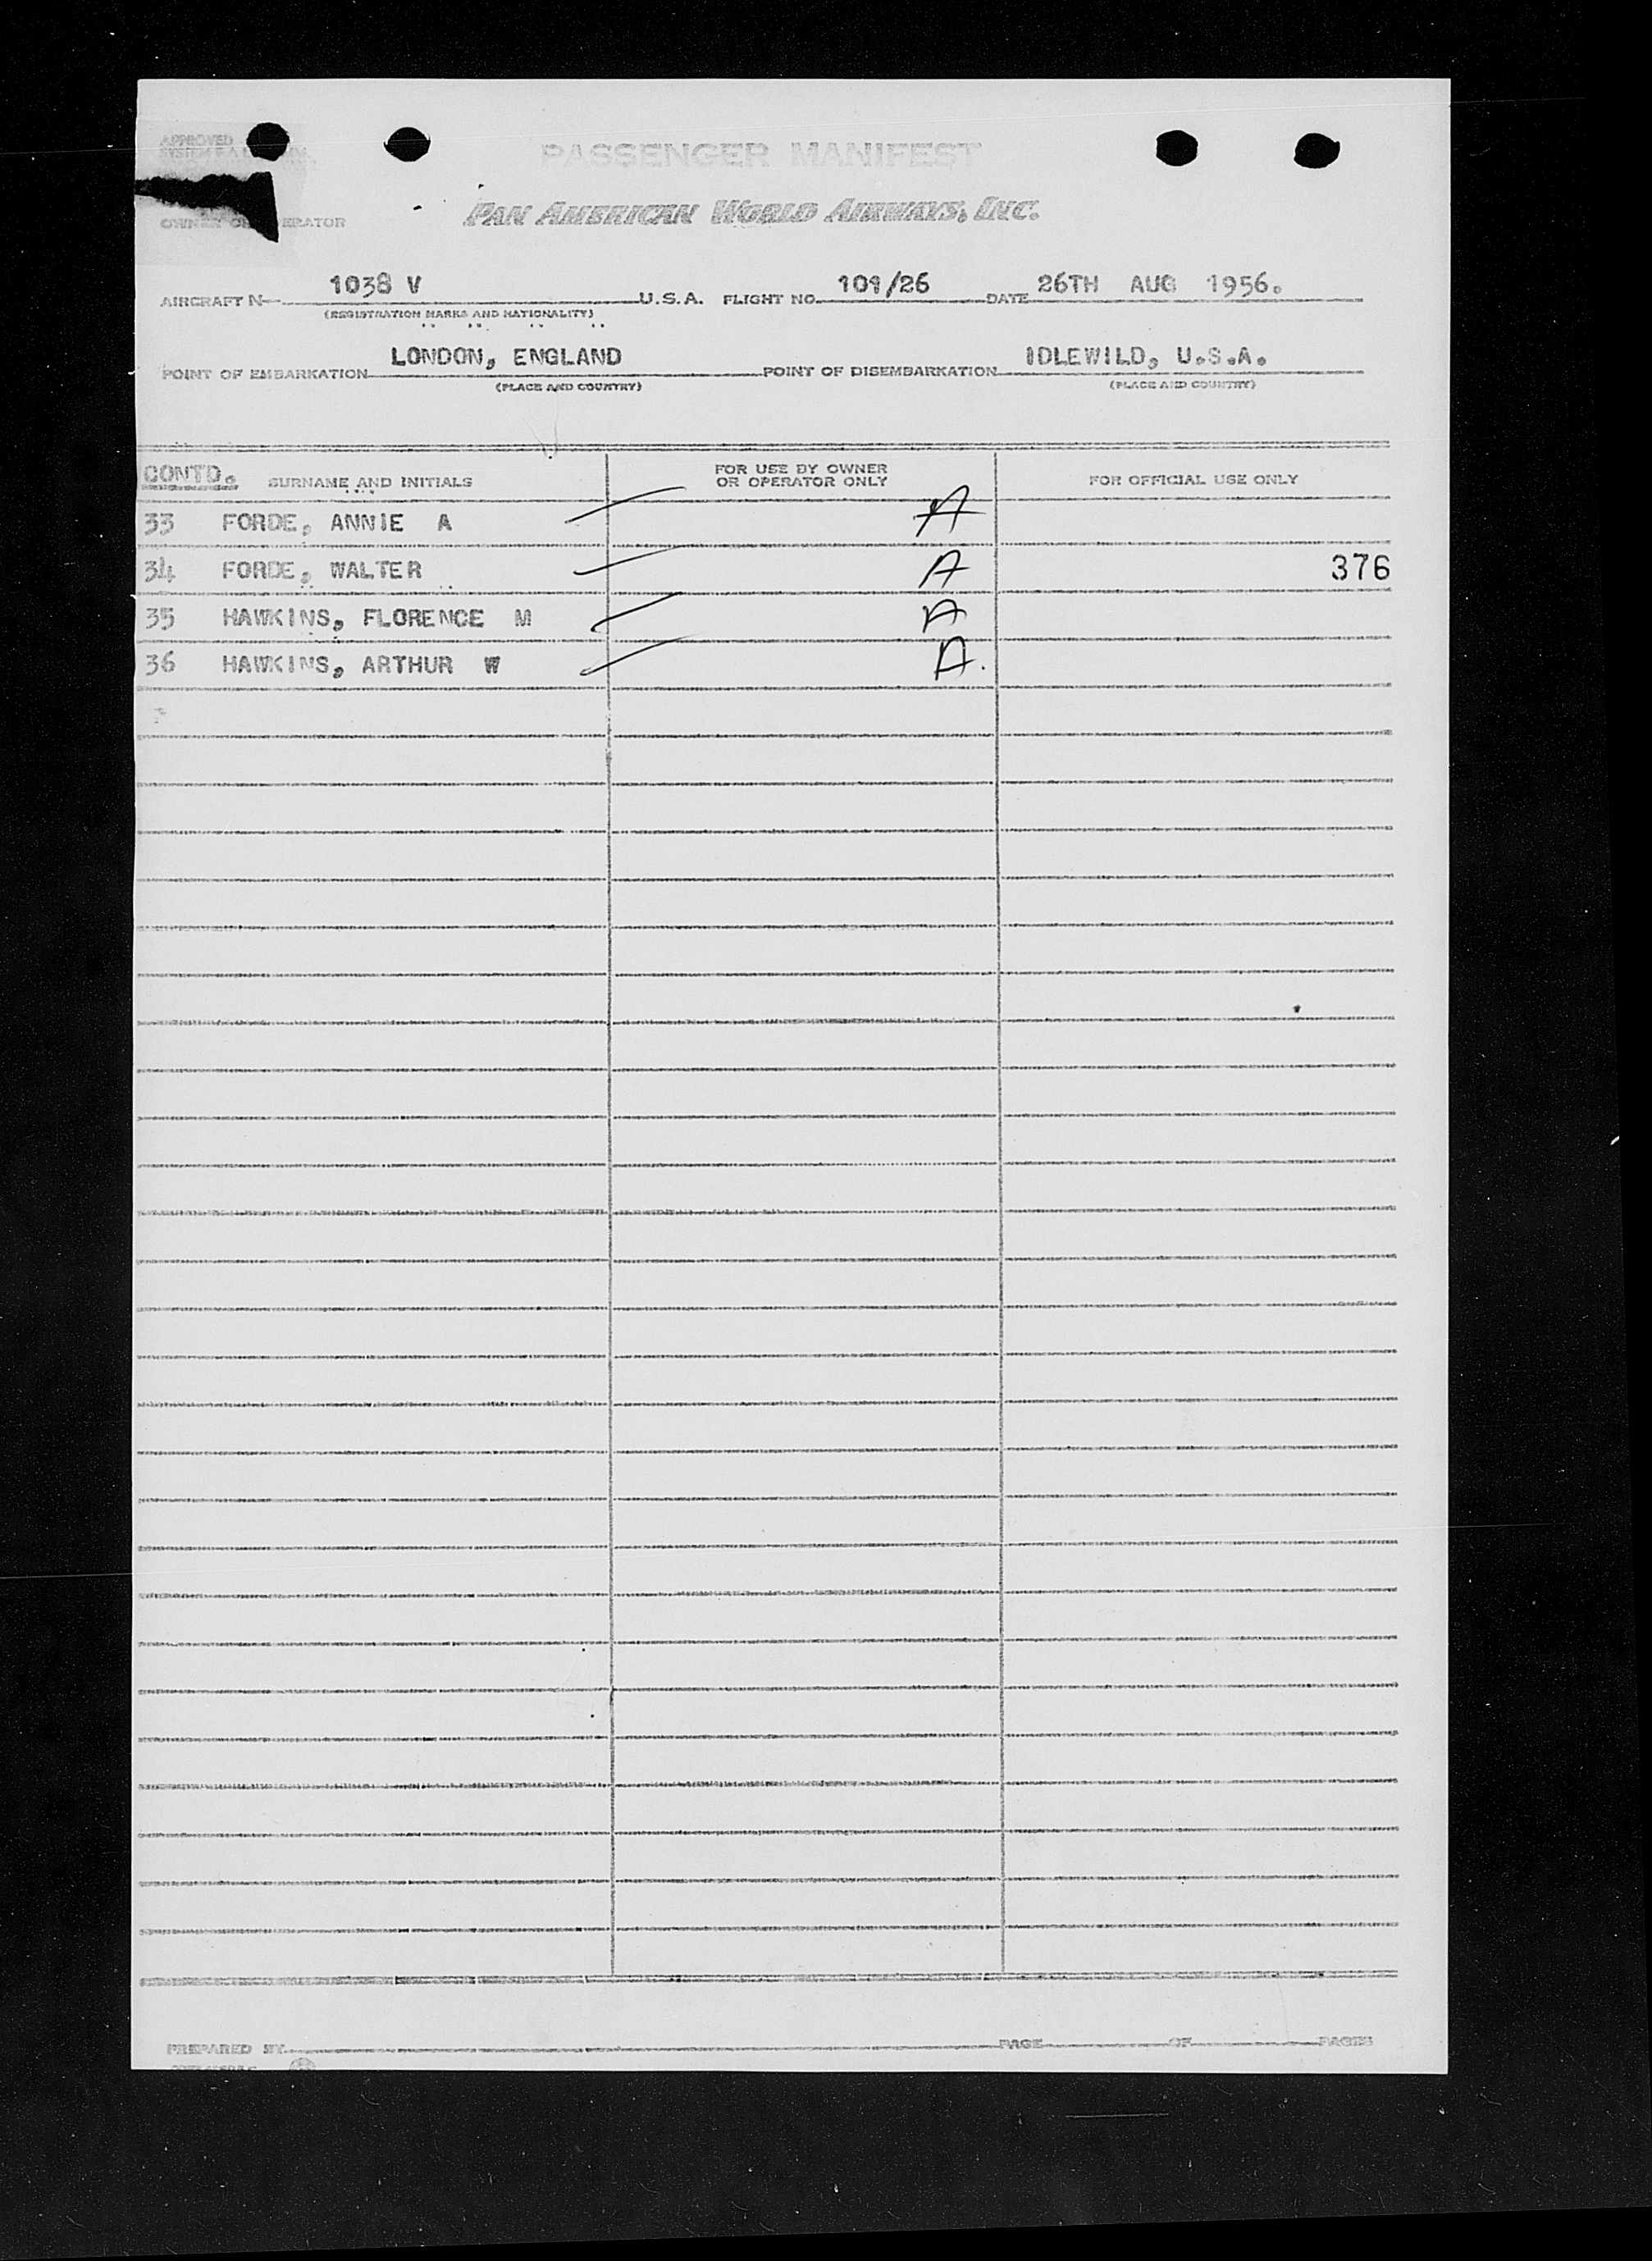 APPROVED
PASSENGER MANIFEST
PAN AMERICAN WORLD AIRWAYS, INC.
AIRCRAFT N 1038 V U.S.A. FLIGHT NO 101/26 DATE 26TH AUG 1956.
(REGISTRATION MARKS AND NATIONALITY)
POINT OF EMBARKATION LONDON, ENGLAND POINT OF DISEMBARKATION IDLEWILD, U.S.A.
(PLACE AND COUNTRY) (PLACE AND COUNTRY)
CONTD. SURNAME AND INITIALS FOR USE BY OWNER OR OPERATOR ONLY FOR OFFICIAL USE ONLY
33 FORDE, ANNIE A A
34 FORDE, WALTER A 376
35 HAWKINS, FLORENCE M A
36 HAWKINS, ARTHUR W A.
PREPARED BY PAGE OF PAGES